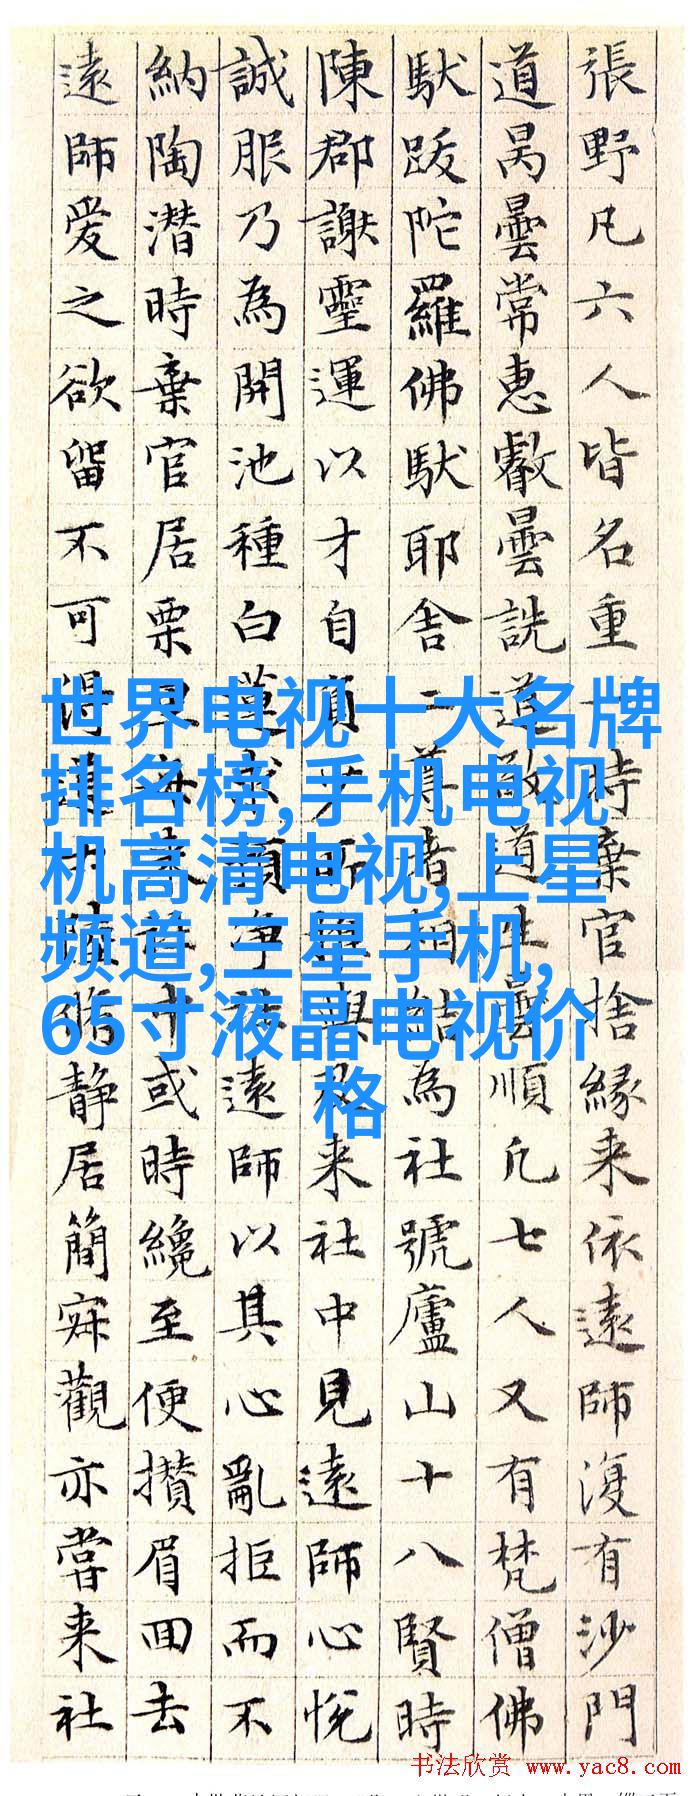 張野凡六人皆名重一時棄官捨緣来依遠師復有沙門
道昺曇常惠叡曇詵道敬道生曇順凡七人又有梵僧佛
馱跋陀羅佛馱耶舎二尊者相結為社號廬山十八賢時
陳郡謝靈運以才自負少所推與及来社中見遠師心悅
誠服乃為開池種白蓮求預淨社遠師以其心亂拒而不
納陶潛時棄官居栗里每来社中或時纔至便攢眉回去
遠師愛之欲留不可得道士陸脩靜居簡寂觀亦嘗来社
世界电视十大名牌
排名榜,手机电视
机高清电视,上星
频道,三星手机,
65寸液晶电视价
格
书法欣赏 www.yac8.com